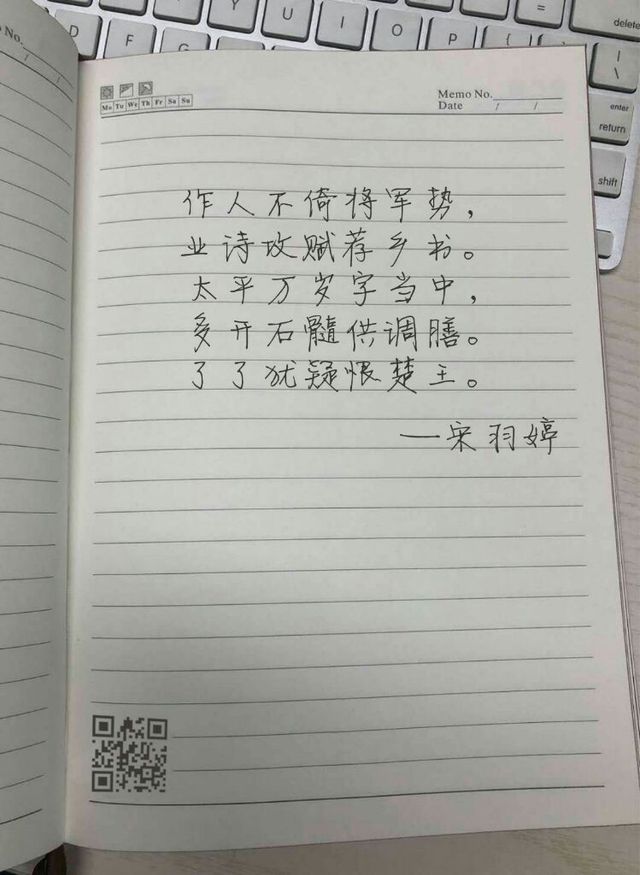 delete
enter
return
shift
No.
/ /
Memo No.
Mo Tu We Th Fr Sa Su
Date / /
作人不倚将军势，
业诗攻赋荐乡书。
太平万岁字当中，
多开石髓供调膳。
了了犹疑恨楚王。
—宋羽婷